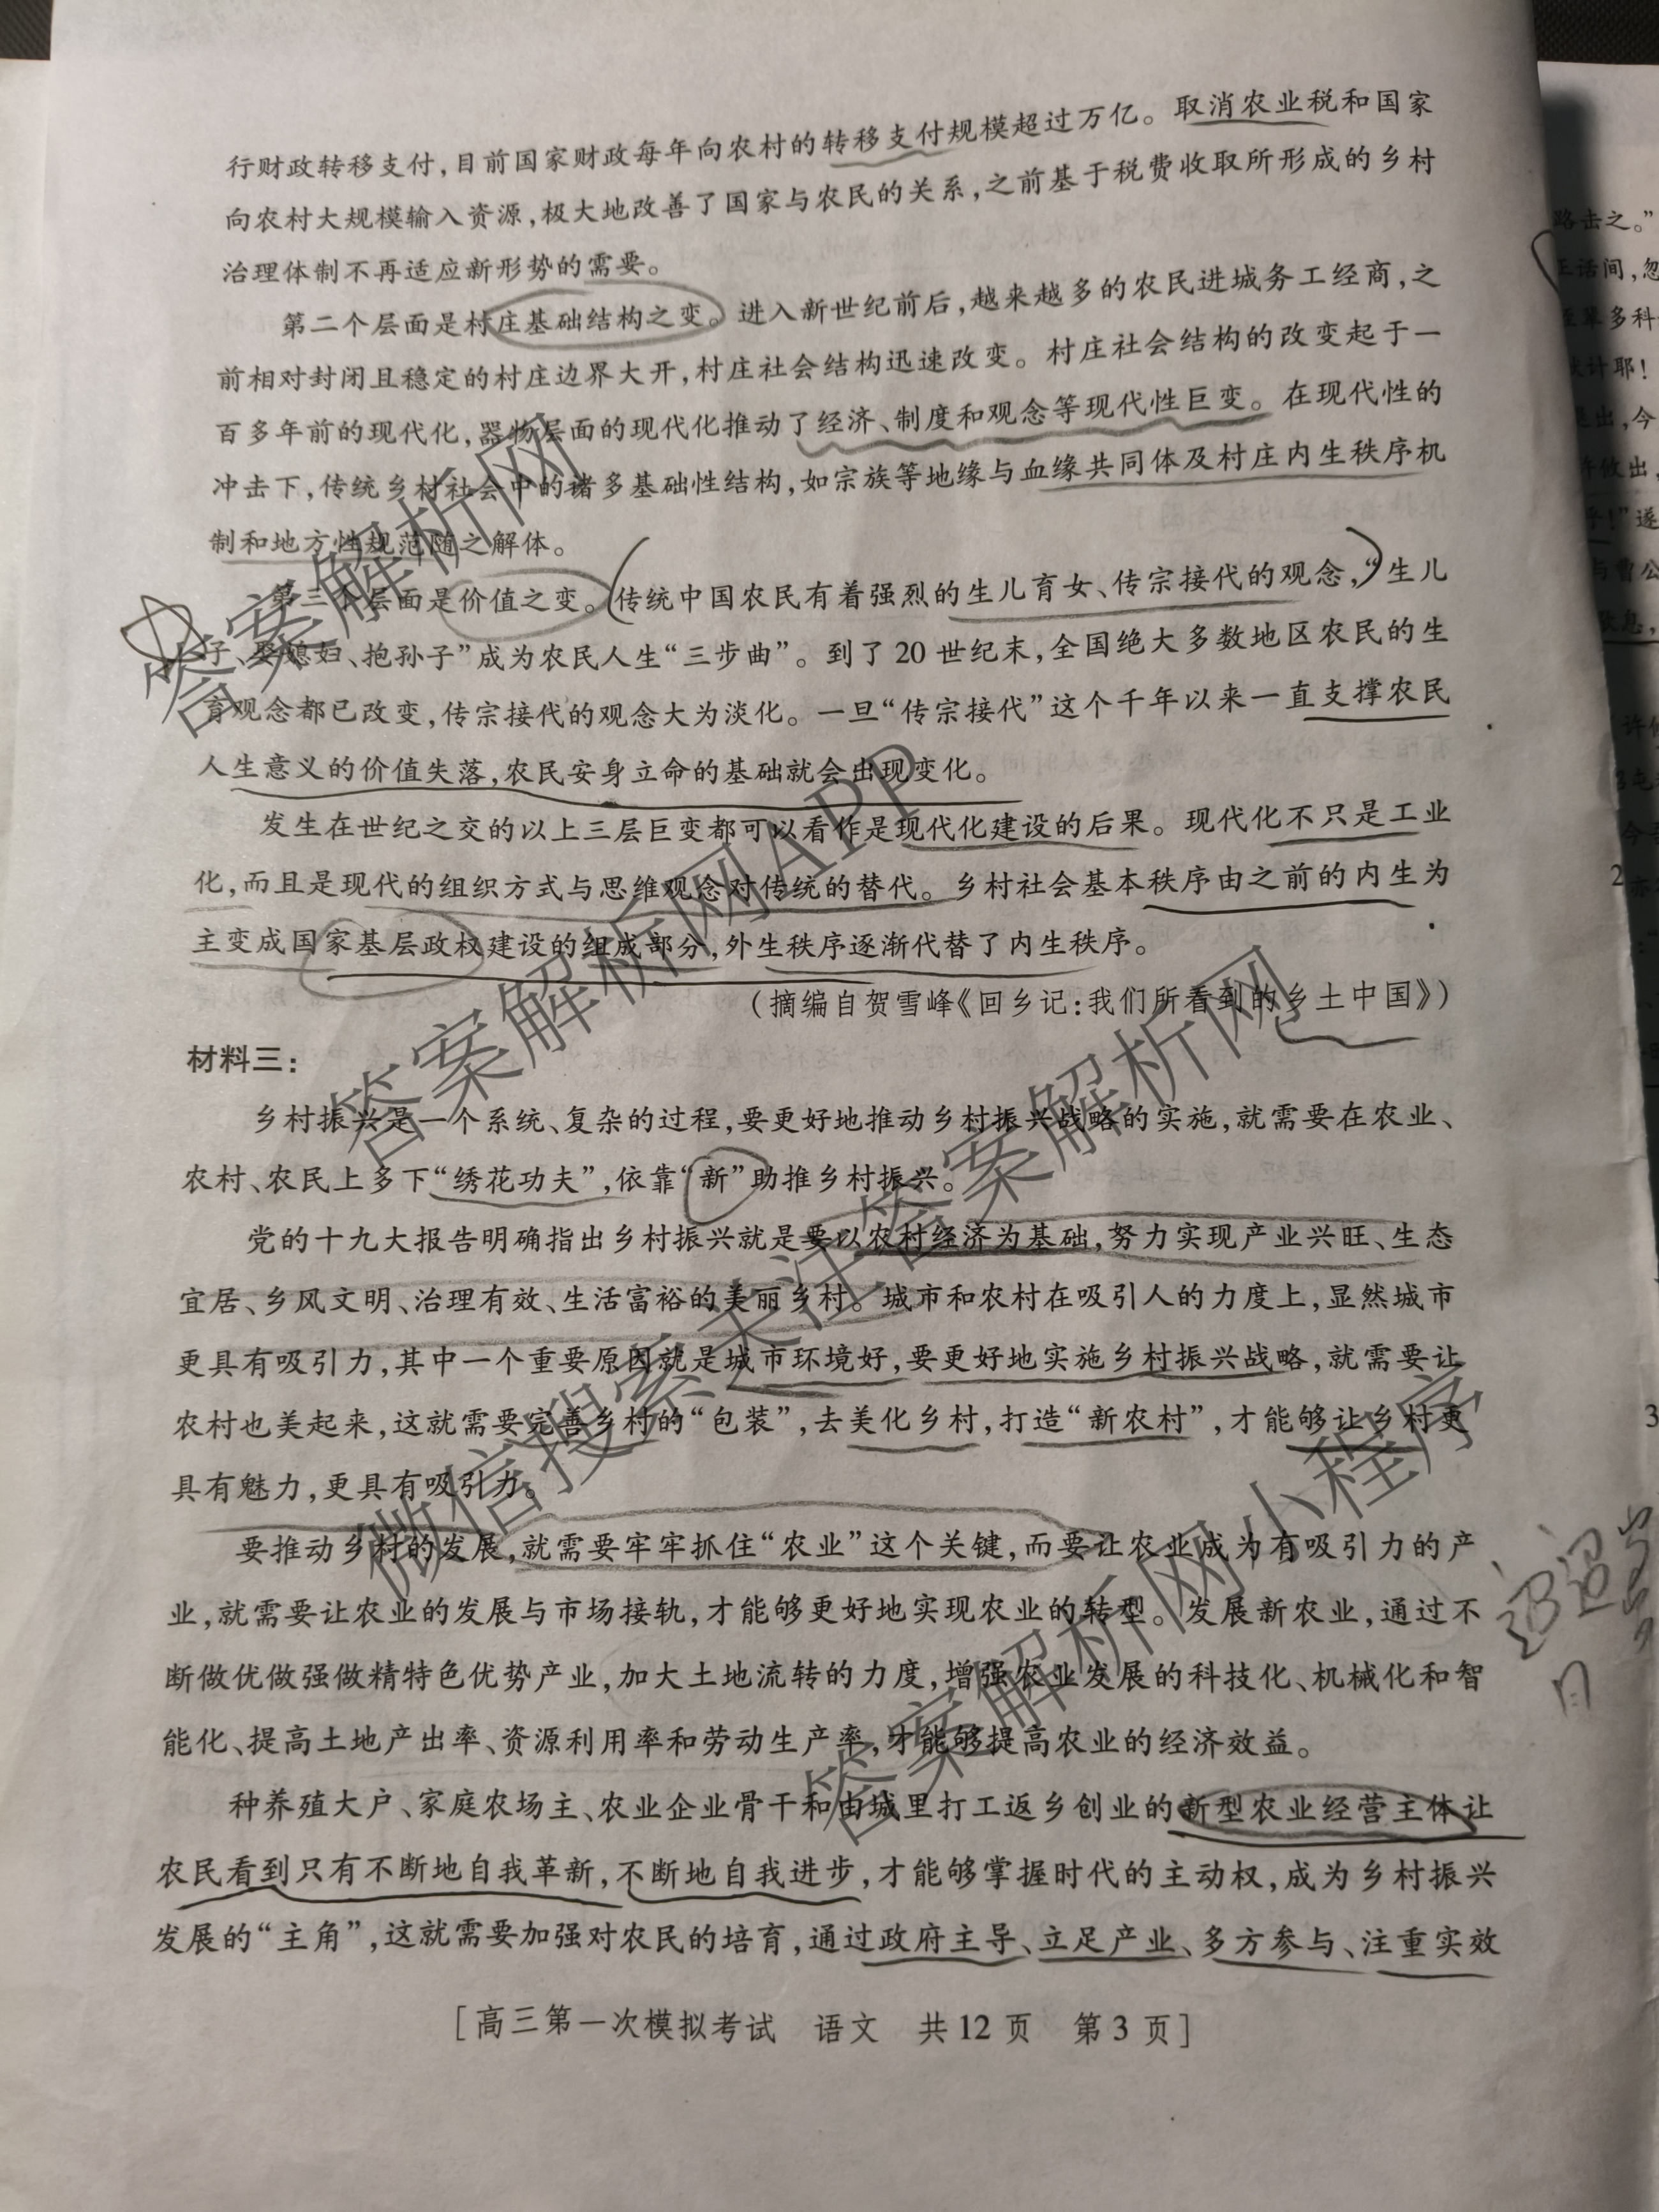 行财政转移支付，目前国家财政每年向农村的转移支付规模超过万亿。取消农业税和国家
向农村大规模输入资源，极大地改善了国家与农民的关系，之前基于税费收取所形成的乡村
治理体制不再适应新形势的需要。
第二个层面是村庄基础结构之变。进入新世纪前后，越来越多的农民进城务工经商，之
前相对封闭且稳定的村庄边界大开，村庄社会结构迅速改变。村庄社会结构的改变起于一
百多年前的现代化，器物层面的现代化推动了经济、制度和观念等现代性巨变。在现代性的
冲击下，传统乡村社会中的诸多基础性结构，如宗族等地缘与血缘共同体及村庄内生秩序机
制和地方性规范随之解体。
第三个层面是价值之变。传统中国农民有着强烈的生儿育女、传宗接代的观念，“生儿
子、娶媳妇、抱孙子”成为农民人生“三步曲”。到了20世纪末，全国绝大多数地区农民的生
育观念都已改变，传宗接代的观念大为淡化。一旦“传宗接代”这个千年以来一直支撑农民
人生意义的价值失落，农民安身立命的基础就会出现变化。
发生在世纪之交的以上三层巨变都可以看作是现代化建设的后果。现代化不只是工业
化，而且是现代的组织方式与思维观念对传统的替代。乡村社会基本秩序由之前的内生为
主变成国家基层政权建设的组成部分，外生秩序逐渐代替了内生秩序。
（摘编自贺雪峰《回乡记：我们所看到的乡土中国》）
材料三：
乡村振兴是一个系统、复杂的过程，要更好地推动乡村振兴战略的实施，就需要在农业、
农村、农民上多下“绣花功夫”，依靠“新”助推乡村振兴。
党的十九大报告明确指出乡村振兴就是要以农村经济为基础，努力实现产业兴旺、生态
宜居、乡风文明、治理有效、生活富裕的美丽乡村。城市和农村在吸引人的力度上，显然城市
更具有吸引力，其中一个重要原因就是城市环境好，要更好地实施乡村振兴战略，就需要让
农村也美起来，这就需要完善乡村的“包装”，去美化乡村，打造“新农村”，才能够让乡村更
具有魅力，更具有吸引力。
要推动乡村的发展，就需要牢牢抓住“农业”这个关键，而要让农业成为有吸引力的产
业，就需要让农业的发展与市场接轨，才能够更好地实现农业的转型。发展新农业，通过不
断做优做强做精特色优势产业，加大土地流转的力度，增强农业发展的科技化、机械化和智
能化、提高土地产出率、资源利用率和劳动生产率，才能够提高农业的经济效益。
种养殖大户、家庭农场主、农业企业骨干和由城里打工返乡创业的新型农业经营主体让
农民看到只有不断地自我革新，不断地自我进步，才能够掌握时代的主动权，成为乡村振兴
发展的“主角”，这就需要加强对农民的培育，通过政府主导、立足产业、多方参与、注重实效
[高三第一次模拟考试 语文 共12页 第3页]
答案解析网
答案解析网APP
微信搜索关注答案解析网
答案解析网小程序
路击之。”
王话间，忽
计耶！
出，今
攸出，
遂
与曹公
息，
2
3